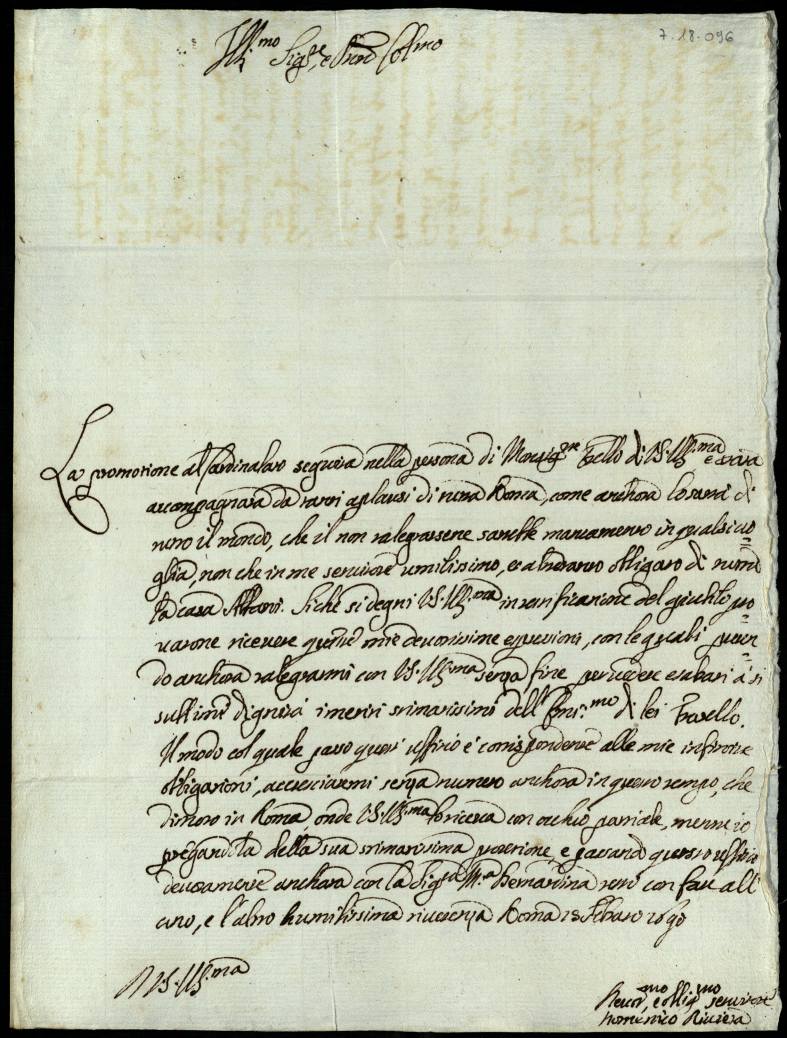 7-18-096
Ill.mo Sig.re, e Pron Col.mo
La promotione al Cardinalato seguita nella persona di Monsig.re fratello di V.S. Ill.ma è stata
accompagnata da tanti aplausi di tutta Roma, come anchora lo sarà di
tutto il mondo, che il non ralegrassene sarebbe mancamento in qualsivo=
glia, non che in me servitore umilissimo, e tanto obligato di tutta
la casa Albani. Siche si degni V.S. Ill.ma in testificatione del giubilo pro=
vatone ricevere queste mie devotissime espressioni, con le quali poten=
do anchora ralegrarmi con V.S. Ill.ma senza fine per vedere esaltati à si
sublime dignità i meriti stimatissimi dell' Emi.mo di lei Fratello.
Il modo col quale passo questi uffitio è corrispondente alle mie infinite
obligationi, accresciutemi senza numero anchora in questo tempo, che
dimoro in Roma, onde V.S. Ill.ma lo riceva con ochio parziale, mentre io
pregandola della sua stimatissima protetione, e passando questo uffitio
devotamente anchora con la Sig.ra M.a Bernardina resto con fare all'
uno, e l'altro humilissima riverenza Roma 18 Febraro 1690
D V.S. Ill.ma
Devot.mo, e oblig.mo servitore
Domenico Riviera